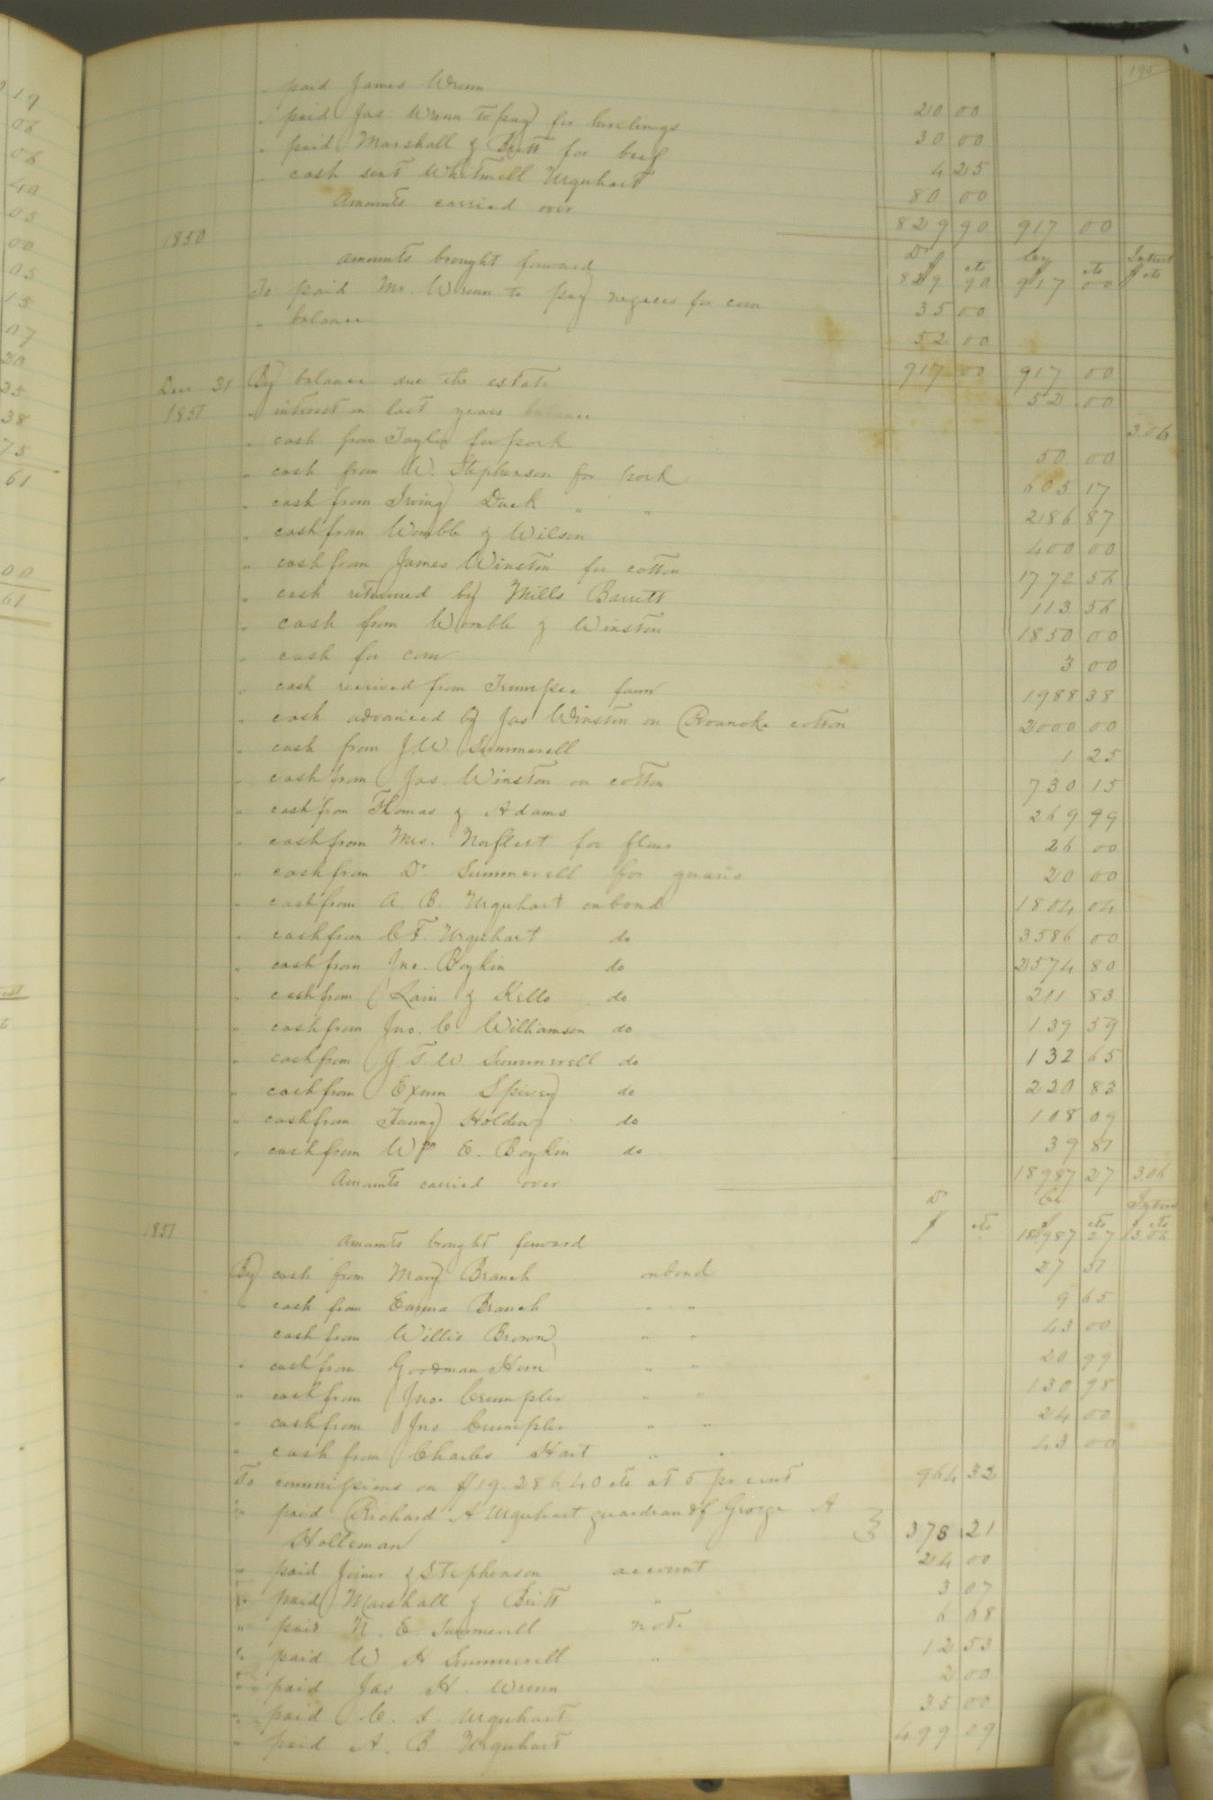 195
" paid James Wrenn 20 00
" paid Jas Wrenn to pay for hirelings 30 00
" paid Marshall & Britt for beef 4 25
" cash sent Whitmell Urquhart 80 00
Amounts carried over 829 90 917 00
1850
Dr Cr Intrest
$ cts $ cts $ cts
Amounts brought forward 829 90 917 00
To paid Mr. Wrenn to pay negroes for corn 35 00
" balance 52 00
917 00 917 00
Dec 31 By balance due the estate 52 00
1851 " interest on last years balance 3.06
" cash from Taylor for pork 50 00
" cash from W. Stephenson for pork 605 17
" cash from Irving Duck " " 2186 87
" cash from Womble & Wilson 400 00
" cash from James Winston for cotton 1772 56
" cash returned by Mills Barrett 113 56
" cash from Womble & Winston 1850 00
" cash for corn 3 00
" cash received from farm 1988 38
" cash advanced by Jas Winston on Roanoke cotton 2000 00
" cash from J. W. Summerell 1 25
" cash from Jas. Winston on cotton 730 15
" cash from Thomas & Adams 269 99
" cash from Mrs. Norfleet for flour 26 00
" cash from Dr. Summerell for guano 20 00
" cash from A. B. Urquhart on bond 1804 04
" cash from C. F. Urquhart do 3586 00
" cash from Jno. Boykin do 2574 80
" cash from Lain & Kello do 211 83
" cash from Jno. C. Williamson do 139 59
" cash from J T. W. Summerell do 132 65
" cash from Exum Spivey do 220 83
" cash from Fanny Holden do 108 09
" cash from Wm E. Boykin do 39 81
Amounts carried over 18987 27 3.06
Dr Cr Intrest
1851 $ cts $ cts $ cts
Amounts brought forward 18987 27 3.06
By cash from Mary Branch on bond 27 51
" cash from Emma Branch " " 9 65
cash from Willis Brown " " 43 00
" cash from Goodman Horn " " 20 99
" cash from Jno. Crumpler " " 130 98
" cash from Jno Crumpler " " 24 00
" cash from Charles Hart " " 43 00
To commissions on $19.286 40 cts at 5 pr cent 964 32
" paid Richard A Urquhart guardian of George A
Holleman 378 21
" paid Joiner & Stephenson account 24 00
" paid Marshall & Britt " 3 07
" paid N. E. Summerell note 6 08
" paid W H Summerell " 12 53
" paid Jas H. Wrenn 2 00
" paid C. F. Urquhart 35 00
" paid A. B Urquhart 499 09